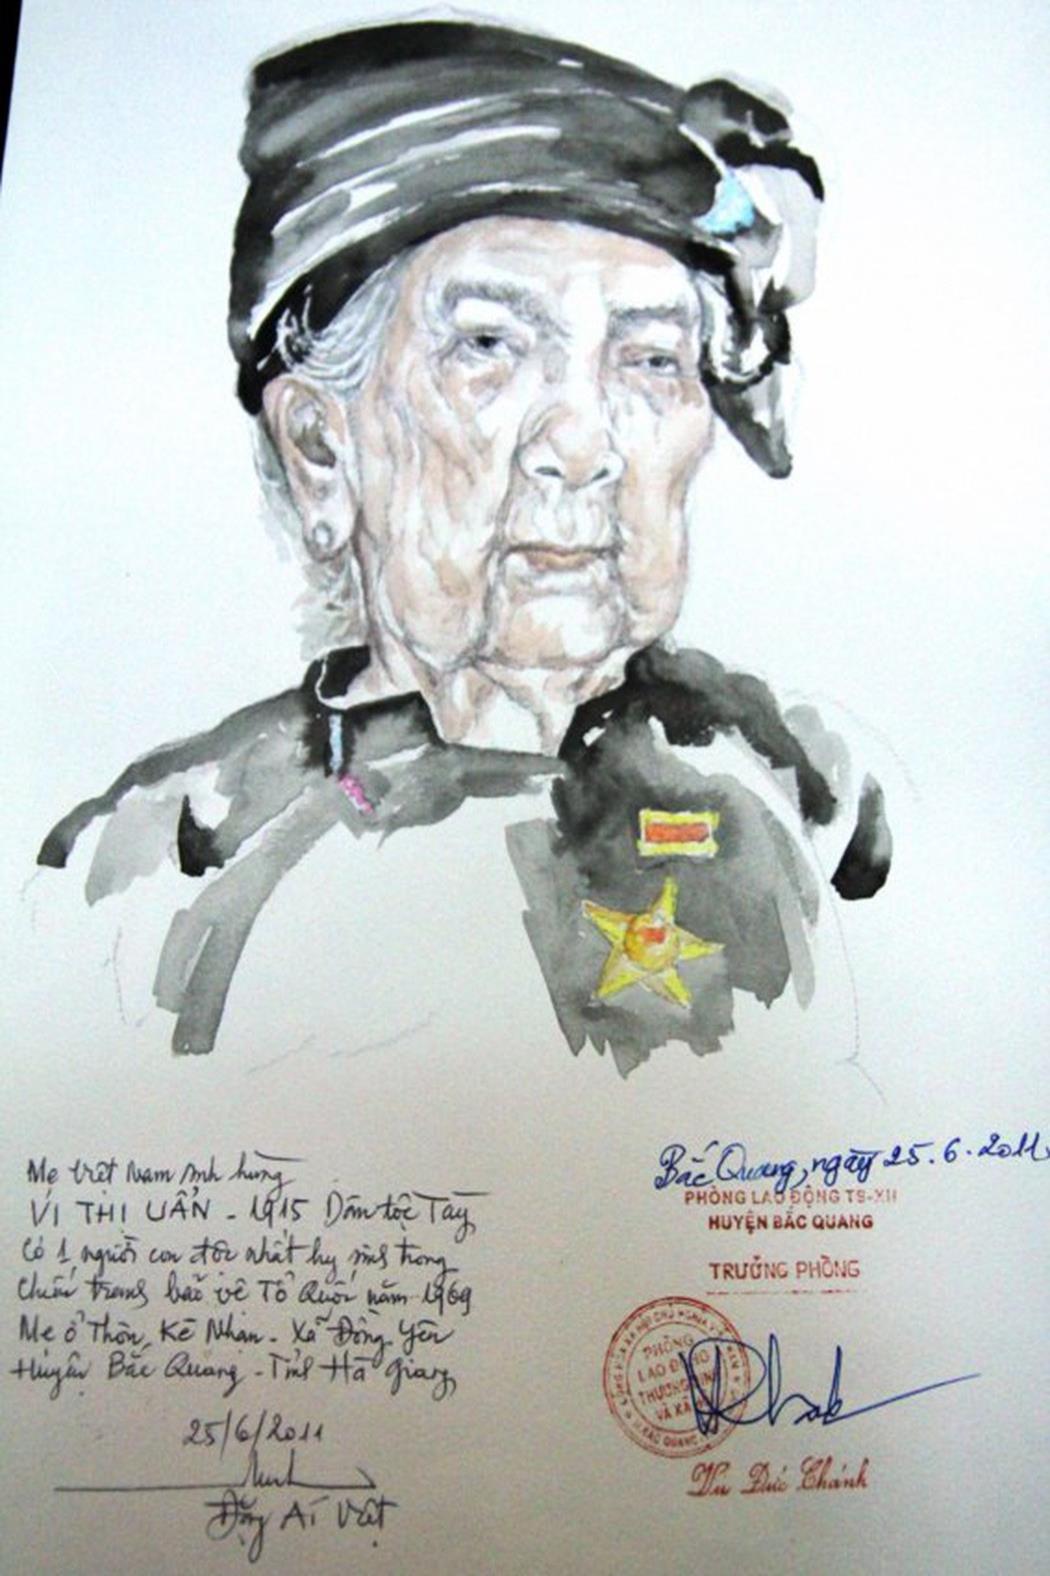 Mẹ Việt Nam Anh hùng
VI THỊ UẨN - 1915 Dân tộc Tày
Có 1 người con độc nhất hy sinh trong
chiến tranh bảo vệ Tổ Quốc năm 1969
Mẹ ở Thôn Kè Nhạn - Xã Đồng Yên
Huyện Bắc Quang - Tỉnh Hà Giang
25/6/2011
Đặng Ái Việt
Bắc Quang, ngày 25.6.2011
PHÒNG LAO ĐỘNG TB-XH
HUYỆN BẮC QUANG
TRƯỞNG PHÒNG
PHÒNG
LAO ĐỘNG
THƯƠNG BINH
VÀ XÃ
Vu Đức Chánh